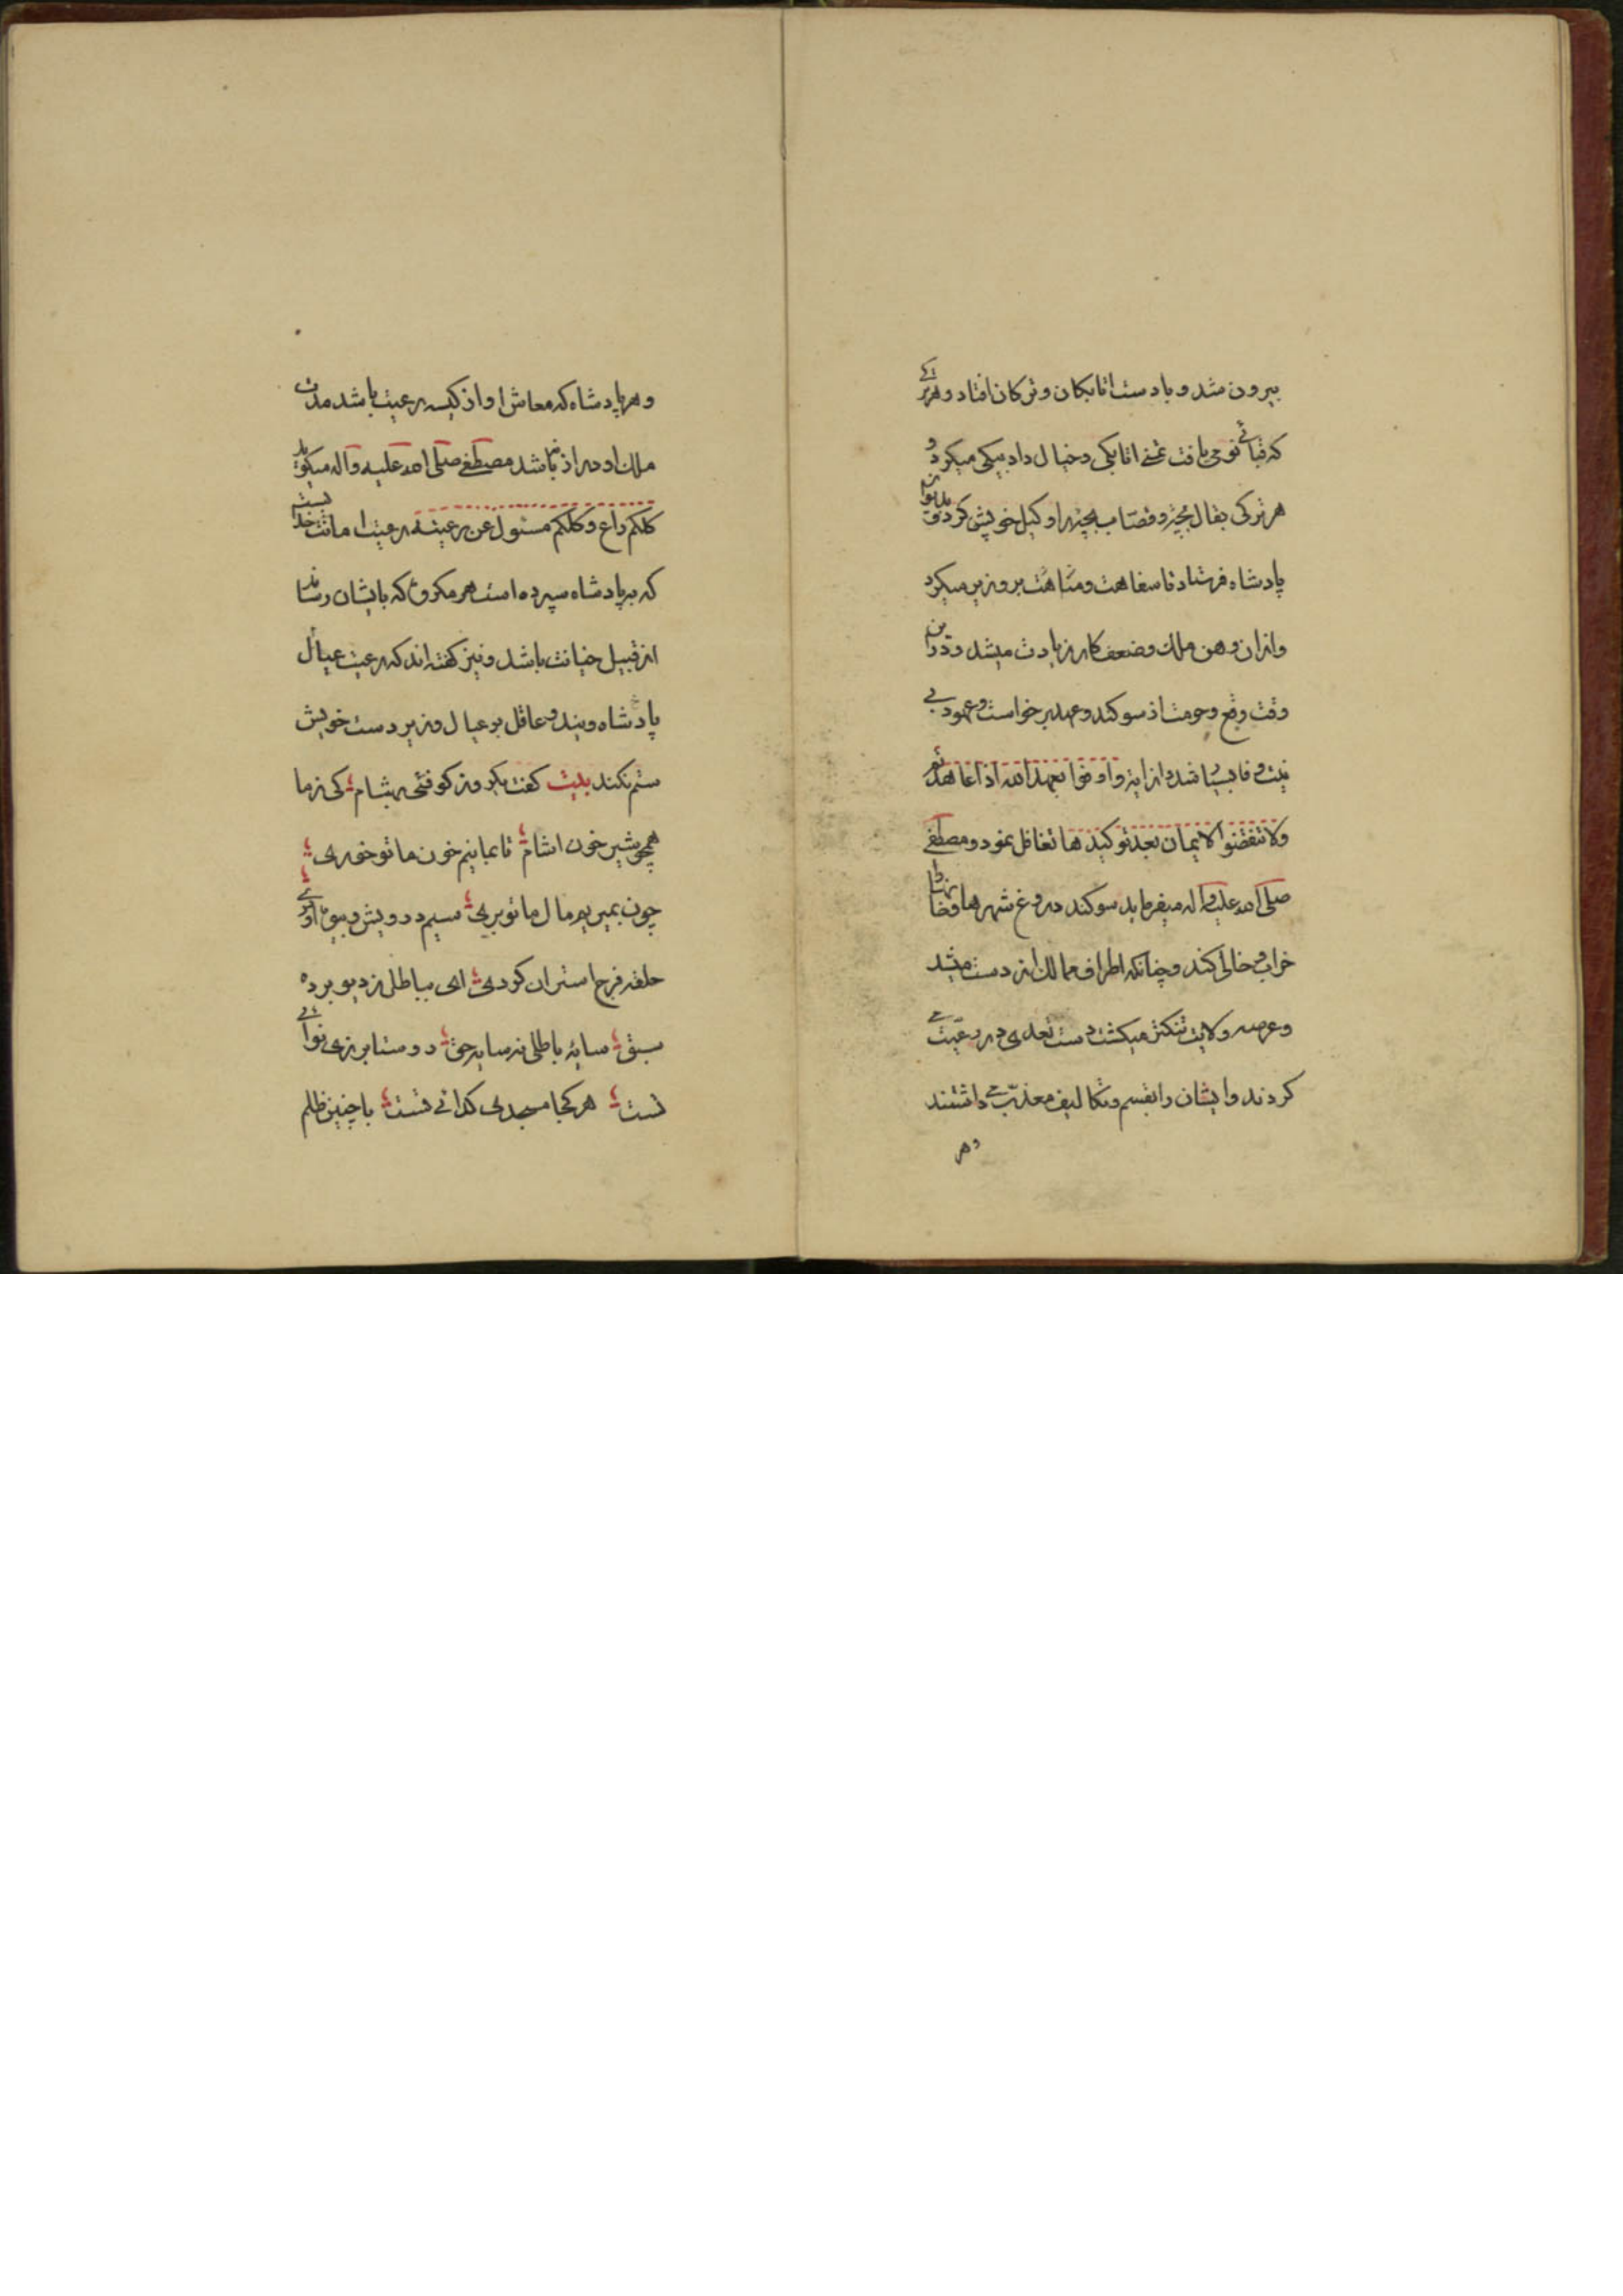 بیرون شد و بادست اتابکان و ترکان افتاد و هر ترکی
که قبائی نوحی یافت تمنی اتابکی و خیال داد بیکی میکرد و
هر ترکی بقال بچه و قصاب بچه را وکیل خویش کرد و بدیوان
پادشاه فرستاد تا سفاهت و متاهت بروز بر میکرد
و ازان وهن ملک و ضعف کار زیادت میشد و درین
وقت وقع و حرمت از سوکند و عهد برخواست و عهود بی
نیت و فا بسیار شد و از ایه و اوفوا بعهد الله اذا عاهدتم
ولا تنقضوا الایمان بعد توکیدها تغافل نمود و مصطفی
صلی الله علیه و اله میفرماید سوکند دروغ شهرها و خانها را
خراب و خالی کند و چنانکه اطراف ممالک از دست میشد
و عرصه ولایت تنکتر میکشت دست تعدی در رعیت
کردند و ایشان را بقسم و تکالیف معذب می داشتند
وهر
و هر پادشاه که معاش او از کیسه رعیت باشد مدت
ملک او دراز نباشد مصطفی صلی الله علیه و اله میکوید
کلکم راع و کلکم مسئول عن رعیته رعیت امانت خدا یست
که بر پادشاه سپرده است هر مکروه که بایشان رسانند
از قبیل خیانت باشد و نیز کفته اند که رعیت عیال
پادشاه ویند و عاقل بر عیال و زیر دست خویش
ستم نکند بیت کفت یکروز کوفئی بهشام؛ کی ز ما
همچو شیر خون اشام؛ تا بمانیم خون ما تو خوری؛
چون بمیریم مال ما تو بری؛ سیم درویش و بیوه اوری؛
حلقه فرج استران کردی؛ ای بباطل ز دیو برده
سبق؛ سایه باطلی نه سایه حق؛ دوستا برزی نوائی
نست؛ هر کجا مسجدی کدائی تست؛ با چنین ظلم